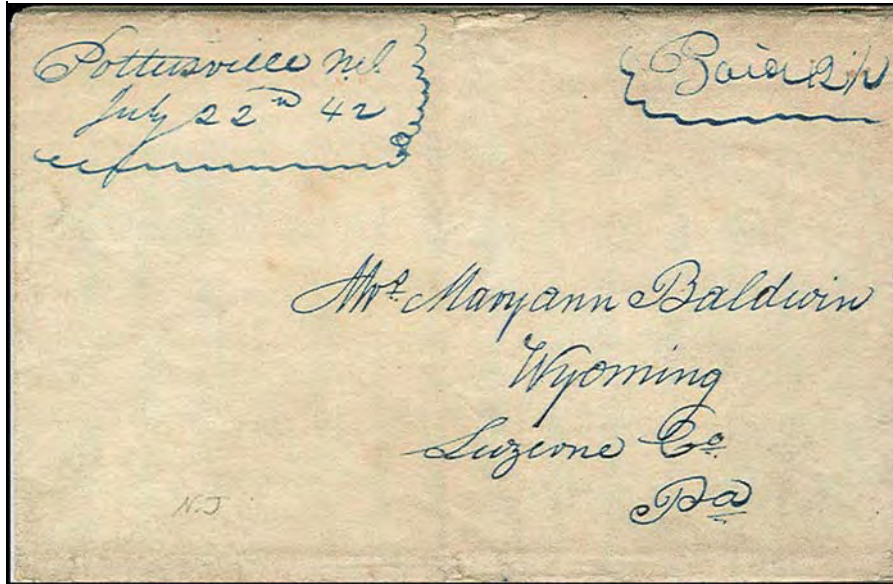 Pottersville N.J.
July 22nd 42
Paid 12½
Mrs. Maryann Baldwin
Wyoming
Luzerne Co.
Pa
N.J